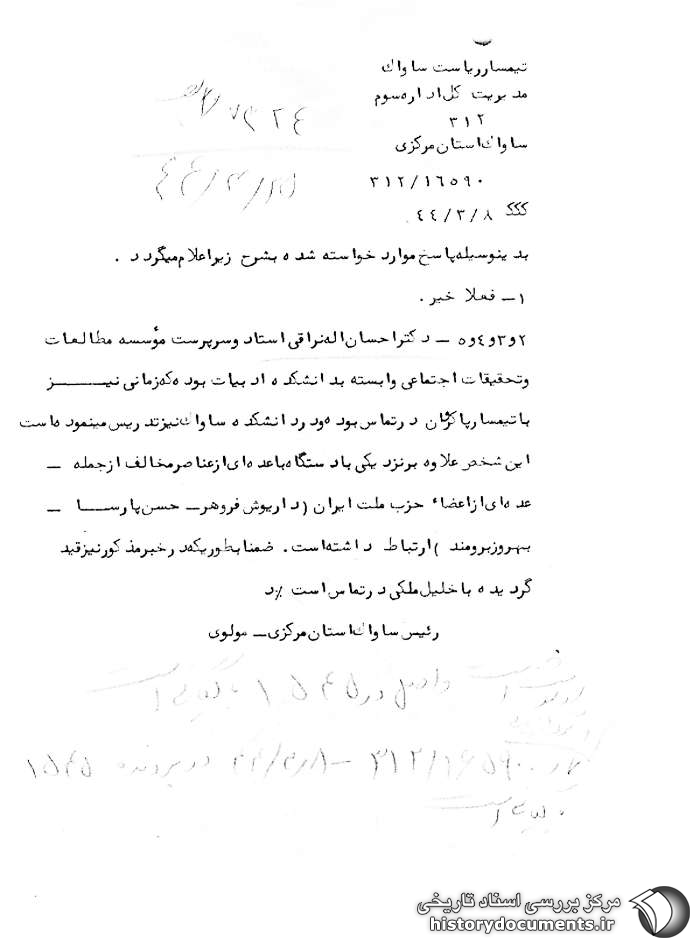 تیمسار ریاست ساواک
مدیریت کل اداره سوم
۳۱۲
ساواک استان مرکزی
۳۱۲/۱۶۵۹۰
۴۴/۳/۸
بدینوسیله پاسخ موارد خواسته شده بشرح زیر اعلام میگردد .
۱ــ فعلا خبر .
۲و۳و۴و۵ ــ دکتر احسان اله نراقی استاد و سرپرست مؤسسه مطالعات
وتحقیقات اجتماعی وابسته بدانشکده ادبیات بوده که زمانی نیـــز
با تیمسار پاکروان در تماس بوده و در دانشکده ساواک نیز تدریس مینموده است
این شخص علاوه بر نزدیکی با دستگاه با عده ای از عناصر مخالف از جمله ــ
عده ای از اعضاء حزب ملت ایران (داریوش فروهرــ حسن پارســا ــ
بهروز برومند) ارتباط داشته است . ضمنا بطوریکه در خبر مذکور نیز قید
گردیده با خلیل ملکی در تماس است
رئیس ساواک استان مرکزی ــ مولوی
واصل در ۱۵۴۵ بایگانی است
۳۱۲/۱۶۵۹۰ – ۴۴/۳/۸ در پرونده ۱۵۴۵
بایگانی است
مرکز بررسی اسناد تاریخی
historydocuments.ir